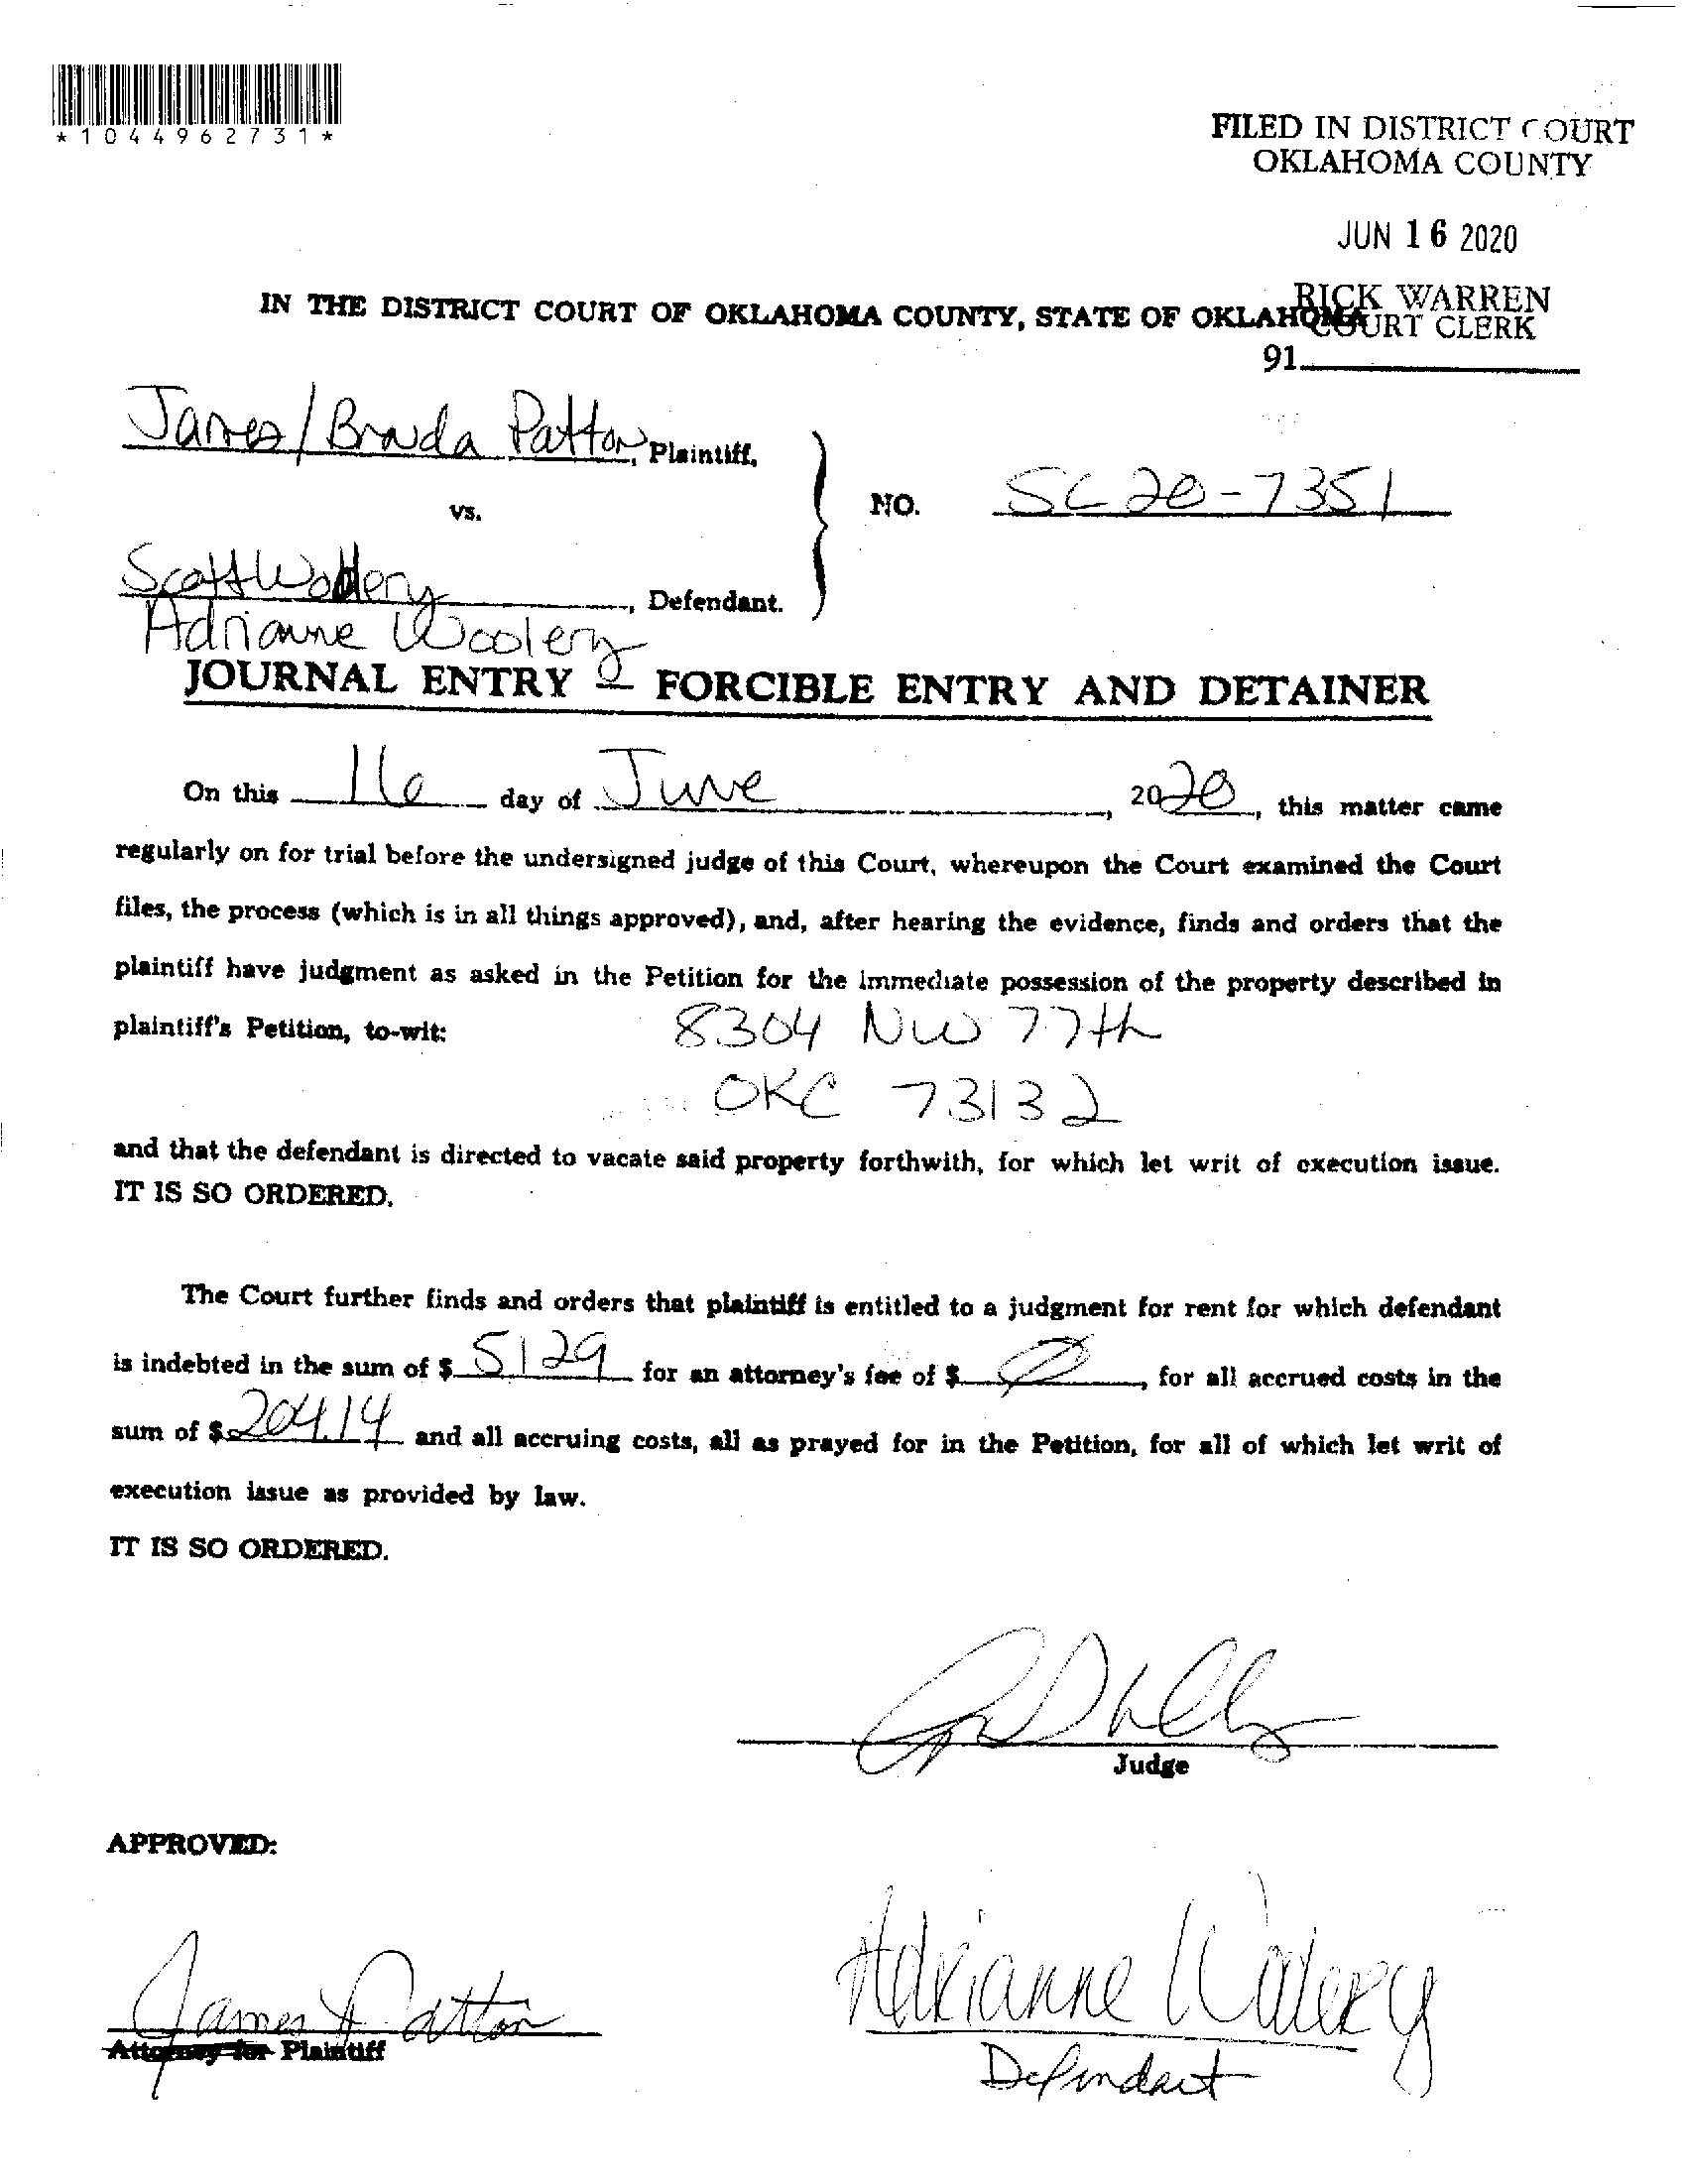 *1044962731*
FILED IN DISTRICT COURT
OKLAHOMA COUNTY
JUN 16 2020
RICK WARREN
COURT CLERK
91
IN THE DISTRICT COURT OF OKLAHOMA COUNTY, STATE OF OKLAHOMA
James/Brenda Patton, Plaintiff,
vs.
NO. SC 20-7351
Scott Woolery, Defendant.
Adrianne Woolery
JOURNAL ENTRY — FORCIBLE ENTRY AND DETAINER
On this 16 day of June, 2020, this matter came
regularly on for trial before the undersigned judge of this Court, whereupon the Court examined the Court
files, the process (which is in all things approved), and, after hearing the evidence, finds and orders that the
plaintiff have judgment as asked in the Petition for the immediate possession of the property described in
plaintiff's Petition, to-wit: 8304 NW 77th
OKC 73132
and that the defendant is directed to vacate said property forthwith, for which let writ of execution issue.
IT IS SO ORDERED.
The Court further finds and orders that plaintiff is entitled to a judgment for rent for which defendant
is indebted in the sum of $ 5129 for an attorney's fee of $ Ø, for all accrued costs in the
sum of $ 204.14 and all accruing costs, all as prayed for in the Petition, for all of which let writ of
execution issue as provided by law.
IT IS SO ORDERED.
Judge
APPROVED:
James Patton
Attorney for Plaintiff
Adrianne Woolery
Defendant